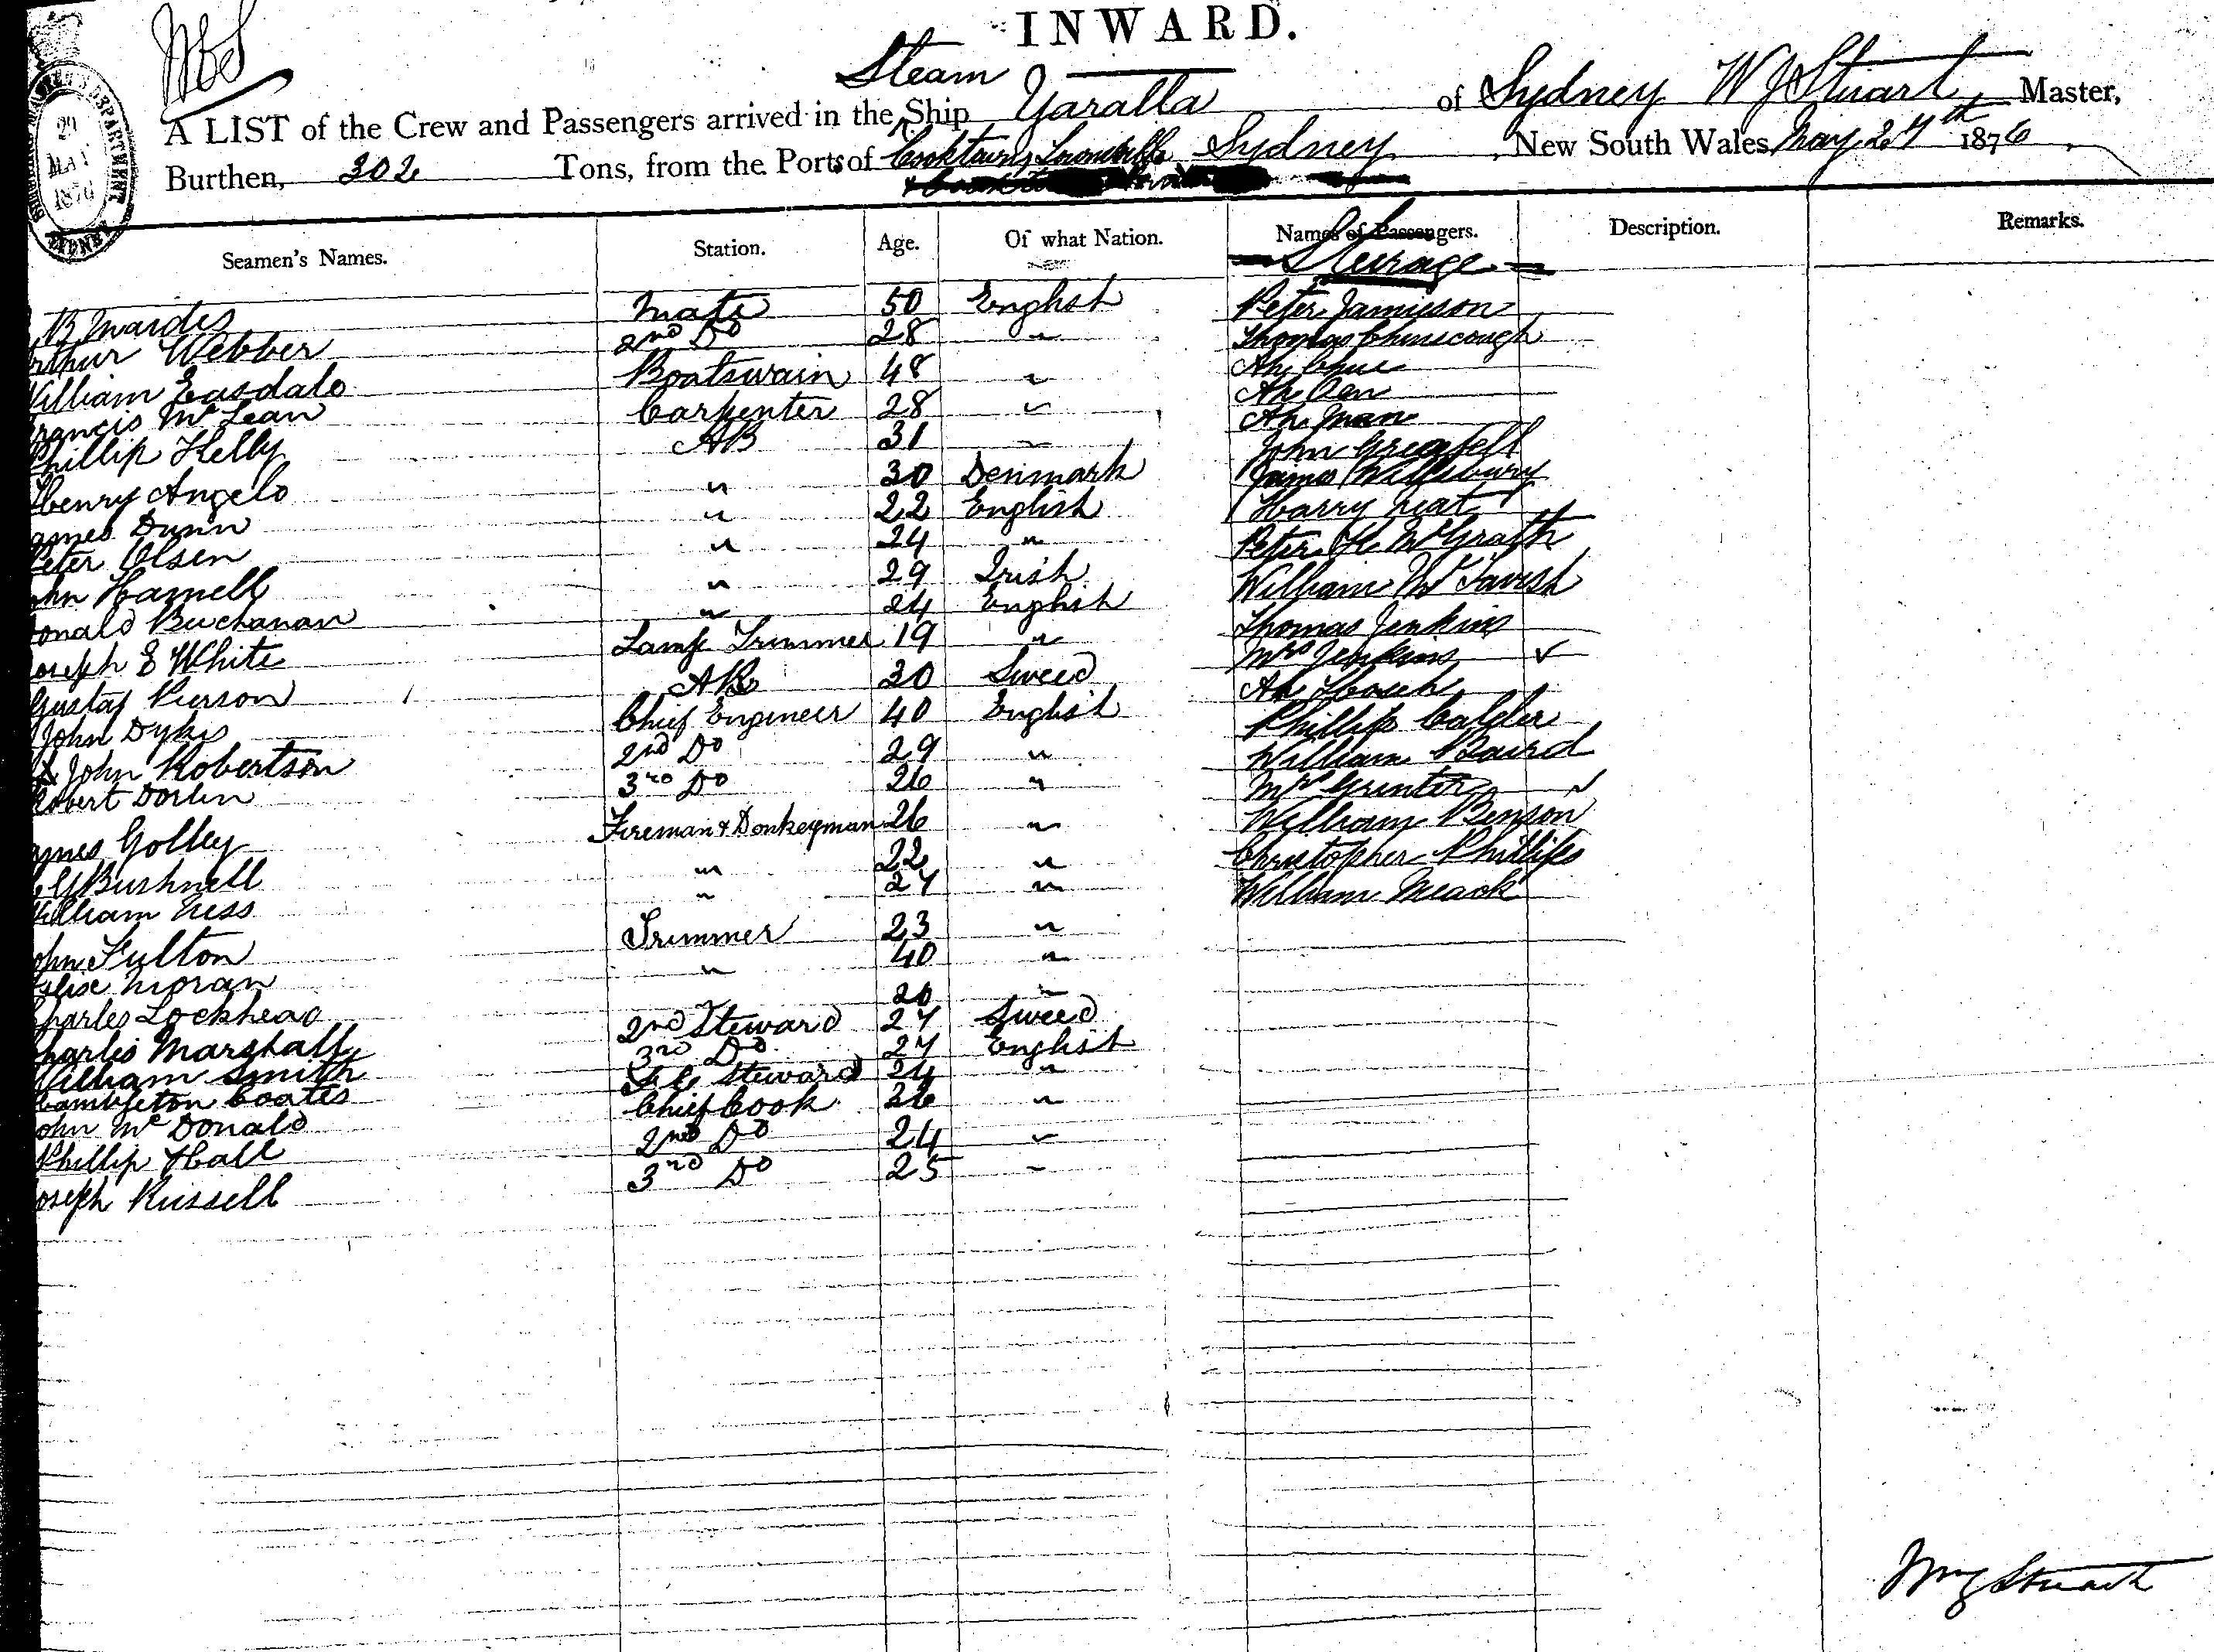 INWARD.
A LIST of the Crew and Passengers arrived in the Steam Ship Yaralla of Sydney W J Stuart Master,
Burthen, 302 Tons, from the Ports of Cooktown Sydney, New South Wales May 27th 1876.
29
MAY
1876
SYDNEY
Seamen's Names. Station. Age. Of what Nation. Names of Passengers. Description. Remarks.
Steirage
Mate 50 English Peter Jamieson
Arthur Webber 2nd Do 28 " Thomas
William Easdale Boatswain 48 " Ah
Francis McLean Carpenter 28 " Ah
Phillip Kelly AB 31 " Ah Man
Henry Angelo " 30 Denmark John
James Dunn " 22 English James
Peter Olsen " 24 " Harry Neat
John Hamell " 29 Irish Peter McGrath
Donald Buchanan " 24 English William McTavish
Joseph E White Lamp Trimmer 19 " Thomas Jenkins
Gustaf Pierson AB 30 Sweed Mrs Jenkins
John Dykes Chief Engineer 40 English Ah
John Robertson 2nd Do 29 " Phillip Calder
Robert 3rd Do 26 " William Baird
James Golley Fireman & Donkeyman 26 " Mrs Grinter
Bushnell " 22 " William Benson
William Niss " 27 " Christopher Phillips
John Fulton Trimmer 23 " William Meack
Felix Moran " 40 "
Charles Lockhead " 20 "
Charles Marshall 2nd Steward 27 Sweed
William Smith 3rd Do 27 English
Coates Steward 24 "
John McDonald Chief Cook 26 "
Phillip Hall 2nd Do 24 "
Joseph Russell 3rd Do 25 "
Wm J Stuart